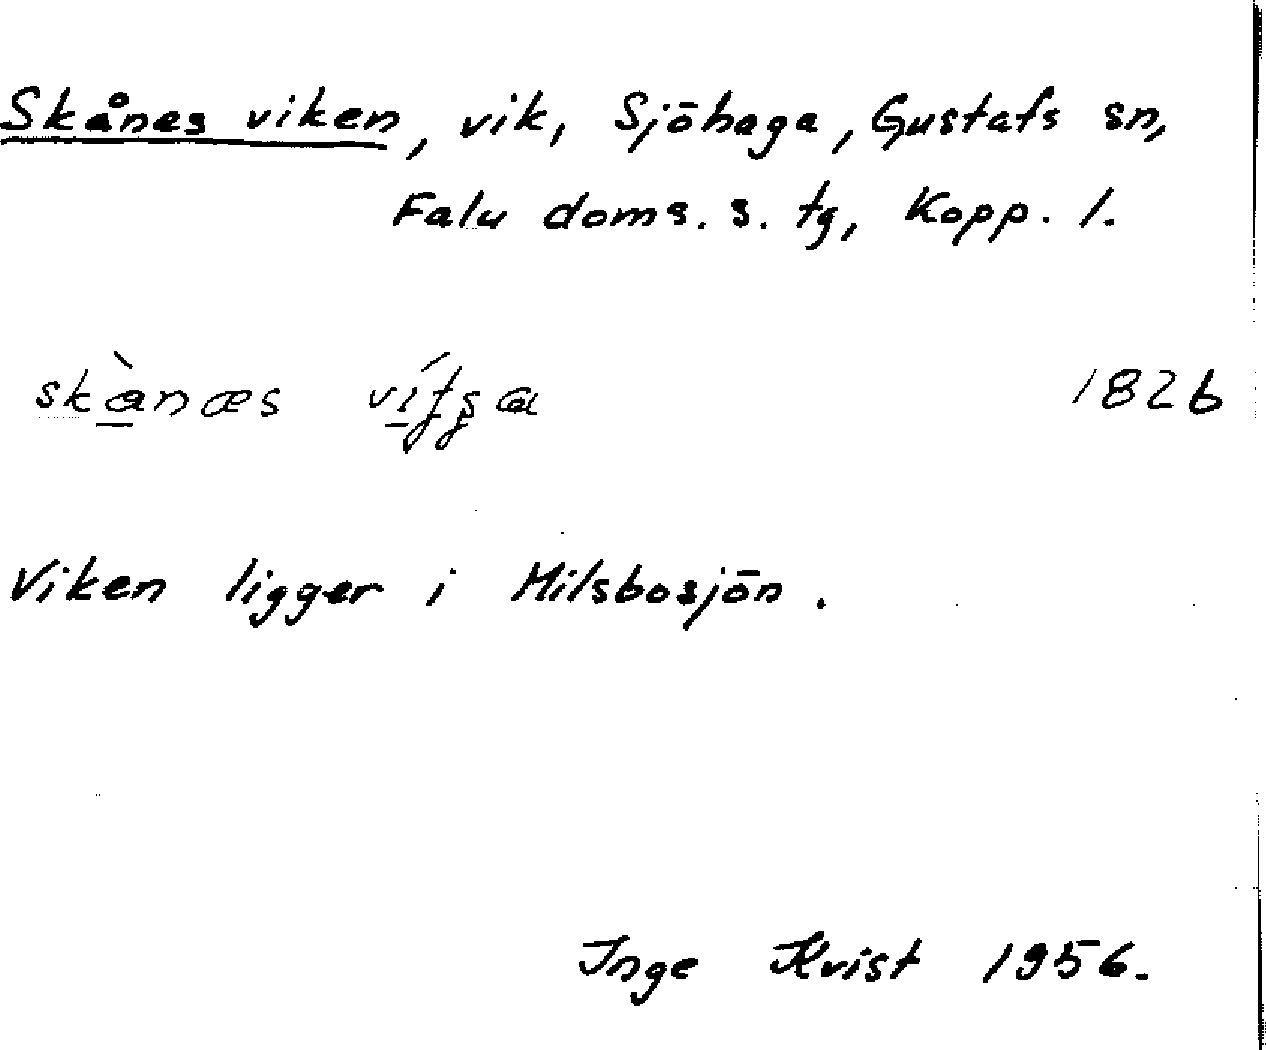 Skånes viken, vik, Sjöhaga, Gustafs sn,
Falu doms. s. tg, Kopp. l.
skànæs 1826
Viken ligger i Milsbosjön.
Inge Kvist 1956.